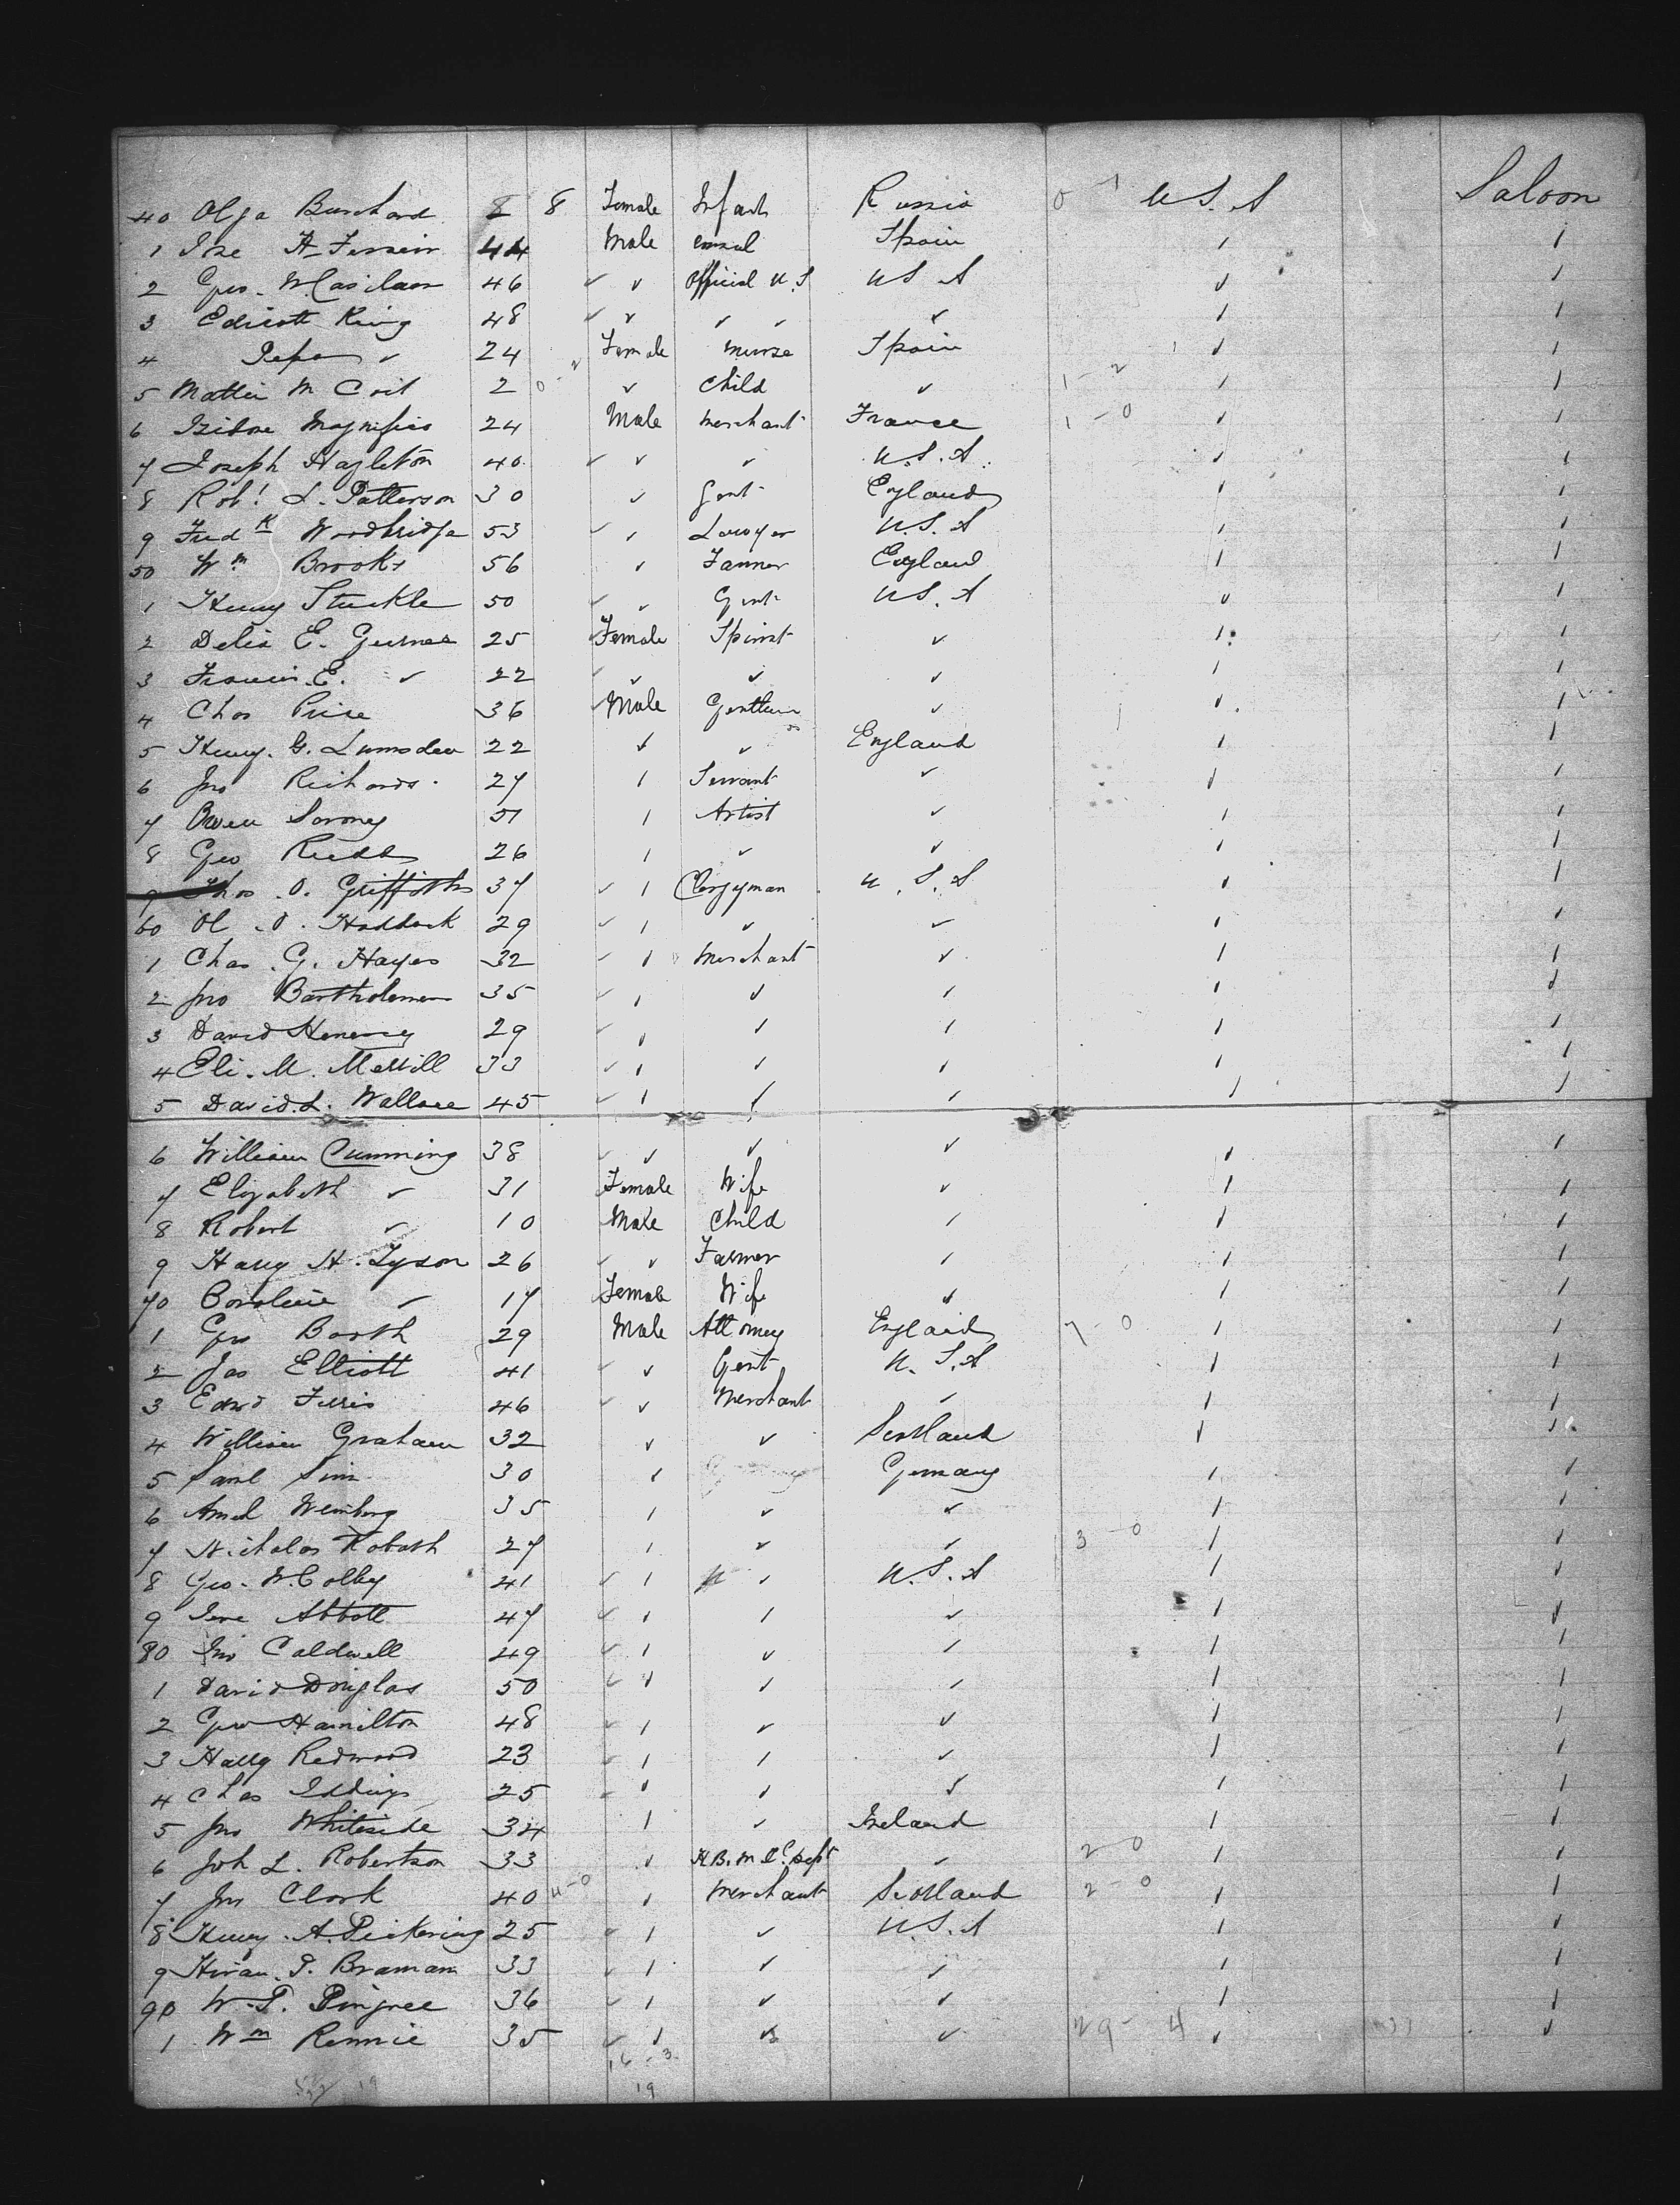 40 Olga Burchard 8 8 Female Infant Russia 0 - 1 U.S.A Saloon
1 Jse A Ferreir 44 Male consul Spain ✓ ✓
2 Geo. W. Casilaer 46 ✓ ✓ Official U.S U S A ✓ ✓
3 Edicott King 48 ✓ ✓ ✓ ✓ ✓ ✓ ✓
4 Pepa ✓ 24 Female nurse Spain ✓ ✓
5 Mattie M Coit 2 0 - ✓ Child ✓ 1 - 2 ✓ ✓
6 Isidore Magnifico 24 Male Merchant France 1 - 0 ✓ ✓
7 Joseph Hazleton 40 ✓ ✓ ✓ U.S.A. ✓ ✓
8 Robt L. Patterson 30 ✓ Gent England ✓ ✓
9 Fredk Woodbridge 53 ✓ ✓ Lawyer U.S.A ✓ ✓
50 Wm Brooks 56 ✓ Tanner England ✓ ✓
1 Henry Stuckle 50 ✓ ✓ Gent US.A ✓ ✓
2 Delia E. Gurnee 25 Female Spinst ✓ ✓ ✓
3 Francis E. ✓ 22 ✓ ✓ ✓ ✓ ✓ ✓
4 Chas Price 36 Male Gentlem ✓ ✓ ✓
5 Henry. G. Lumsden 22 ✓ ✓ England ✓ ✓
6 Jno Richards. 27 ✓ Servant ✓ ✓ ✓
7 Owen Sarony 51 ✓ Artist ✓ ✓ ✓
8 Geo Rudd 26 ✓ ✓ ✓ ✓ ✓
9 Thos. O. Griffiths 37 ✓ ✓ Clergyman U.S.A ✓ ✓
60 Ol. O. Haddock 29 ✓ ✓ ✓ ✓ ✓ ✓
1 Chas. G. Hayes 32 ✓ ✓ Merchant ✓ ✓ ✓
2 Jno Bartholemew 35 ✓ ✓ ✓ ✓ ✓ ✓
3 David Henery 29 ✓ ✓ ✓ ✓ ✓ ✓
4 Eli. M. Merrill 33 ✓ ✓ ✓ ✓ ✓ ✓
5 David. L. Wallace 45 ✓ ✓ ✓ ✓ ✓ ✓
6 William Cumming 38 ✓ ✓ ✓ ✓ ✓ ✓
7 Elizabeth ✓ 31 Female Wife ✓ ✓ ✓
8 Robert ✓ 10 Male Child ✓ ✓ ✓
9 Harry H. Tyson 26 ✓ ✓ Farmer ✓ ✓ ✓
70 Caroline ✓ 17 Female Wife ✓ ✓ ✓
1 Geo Booth 29 Male Attorney England 7 - 0 ✓ ✓
2 Jas Elliott 41 ✓ ✓ Gent U.S.A ✓ ✓
3 Edwd Ferris 46 ✓ ✓ Merchant ✓ ✓ ✓
4 William Graham 32 ✓ ✓ Scotland ✓ ✓
5 Saml Sim 30 ✓ Germany ✓ ✓
6 Weinberg 35 ✓ ✓ ✓ ✓ ✓
7 Nicholas Kobath 27 ✓ ✓ ✓ 3 - 0 ✓ ✓
8 Geo. W. Colby 41 ✓ ✓ ✓ U.S.A ✓ ✓
9 Jere Abbott 47 ✓ ✓ ✓ ✓ ✓ ✓
80 Jno Caldwell 49 ✓ ✓ ✓ ✓ ✓ ✓
1 David Douglas 50 ✓ ✓ ✓ ✓ ✓ ✓
2 Geo Hamilton 48 ✓ ✓ ✓ ✓ ✓ ✓
3 Harry Redwood 23 ✓ ✓ ✓ ✓ ✓ ✓
4 Chas Iddings 25 ✓ ✓ ✓ ✓ ✓ ✓
5 Jno Whiteside 34 ✓ ✓ Ireland ✓ ✓
6 Joh L. Robertson 33 ✓ H.B.M. ✓ 2 - 0 ✓ ✓
7 Jno Clark 40 4 - 0 ✓ Merchant Scotland 2 - 0 ✓ ✓
8 Henry. A. Pickering 25 ✓ ✓ ✓ U.S.A ✓ ✓
9 Hiram. P. Braman 33 ✓ ✓ ✓ ✓ ✓ ✓
90 W. P. Pingree 36 ✓ ✓ ✓ ✓ ✓ ✓
1 Wm Rennie 35 ✓ ✓ ✓ ✓ 29 - 4 ✓ ✓
16 - 3
19 19